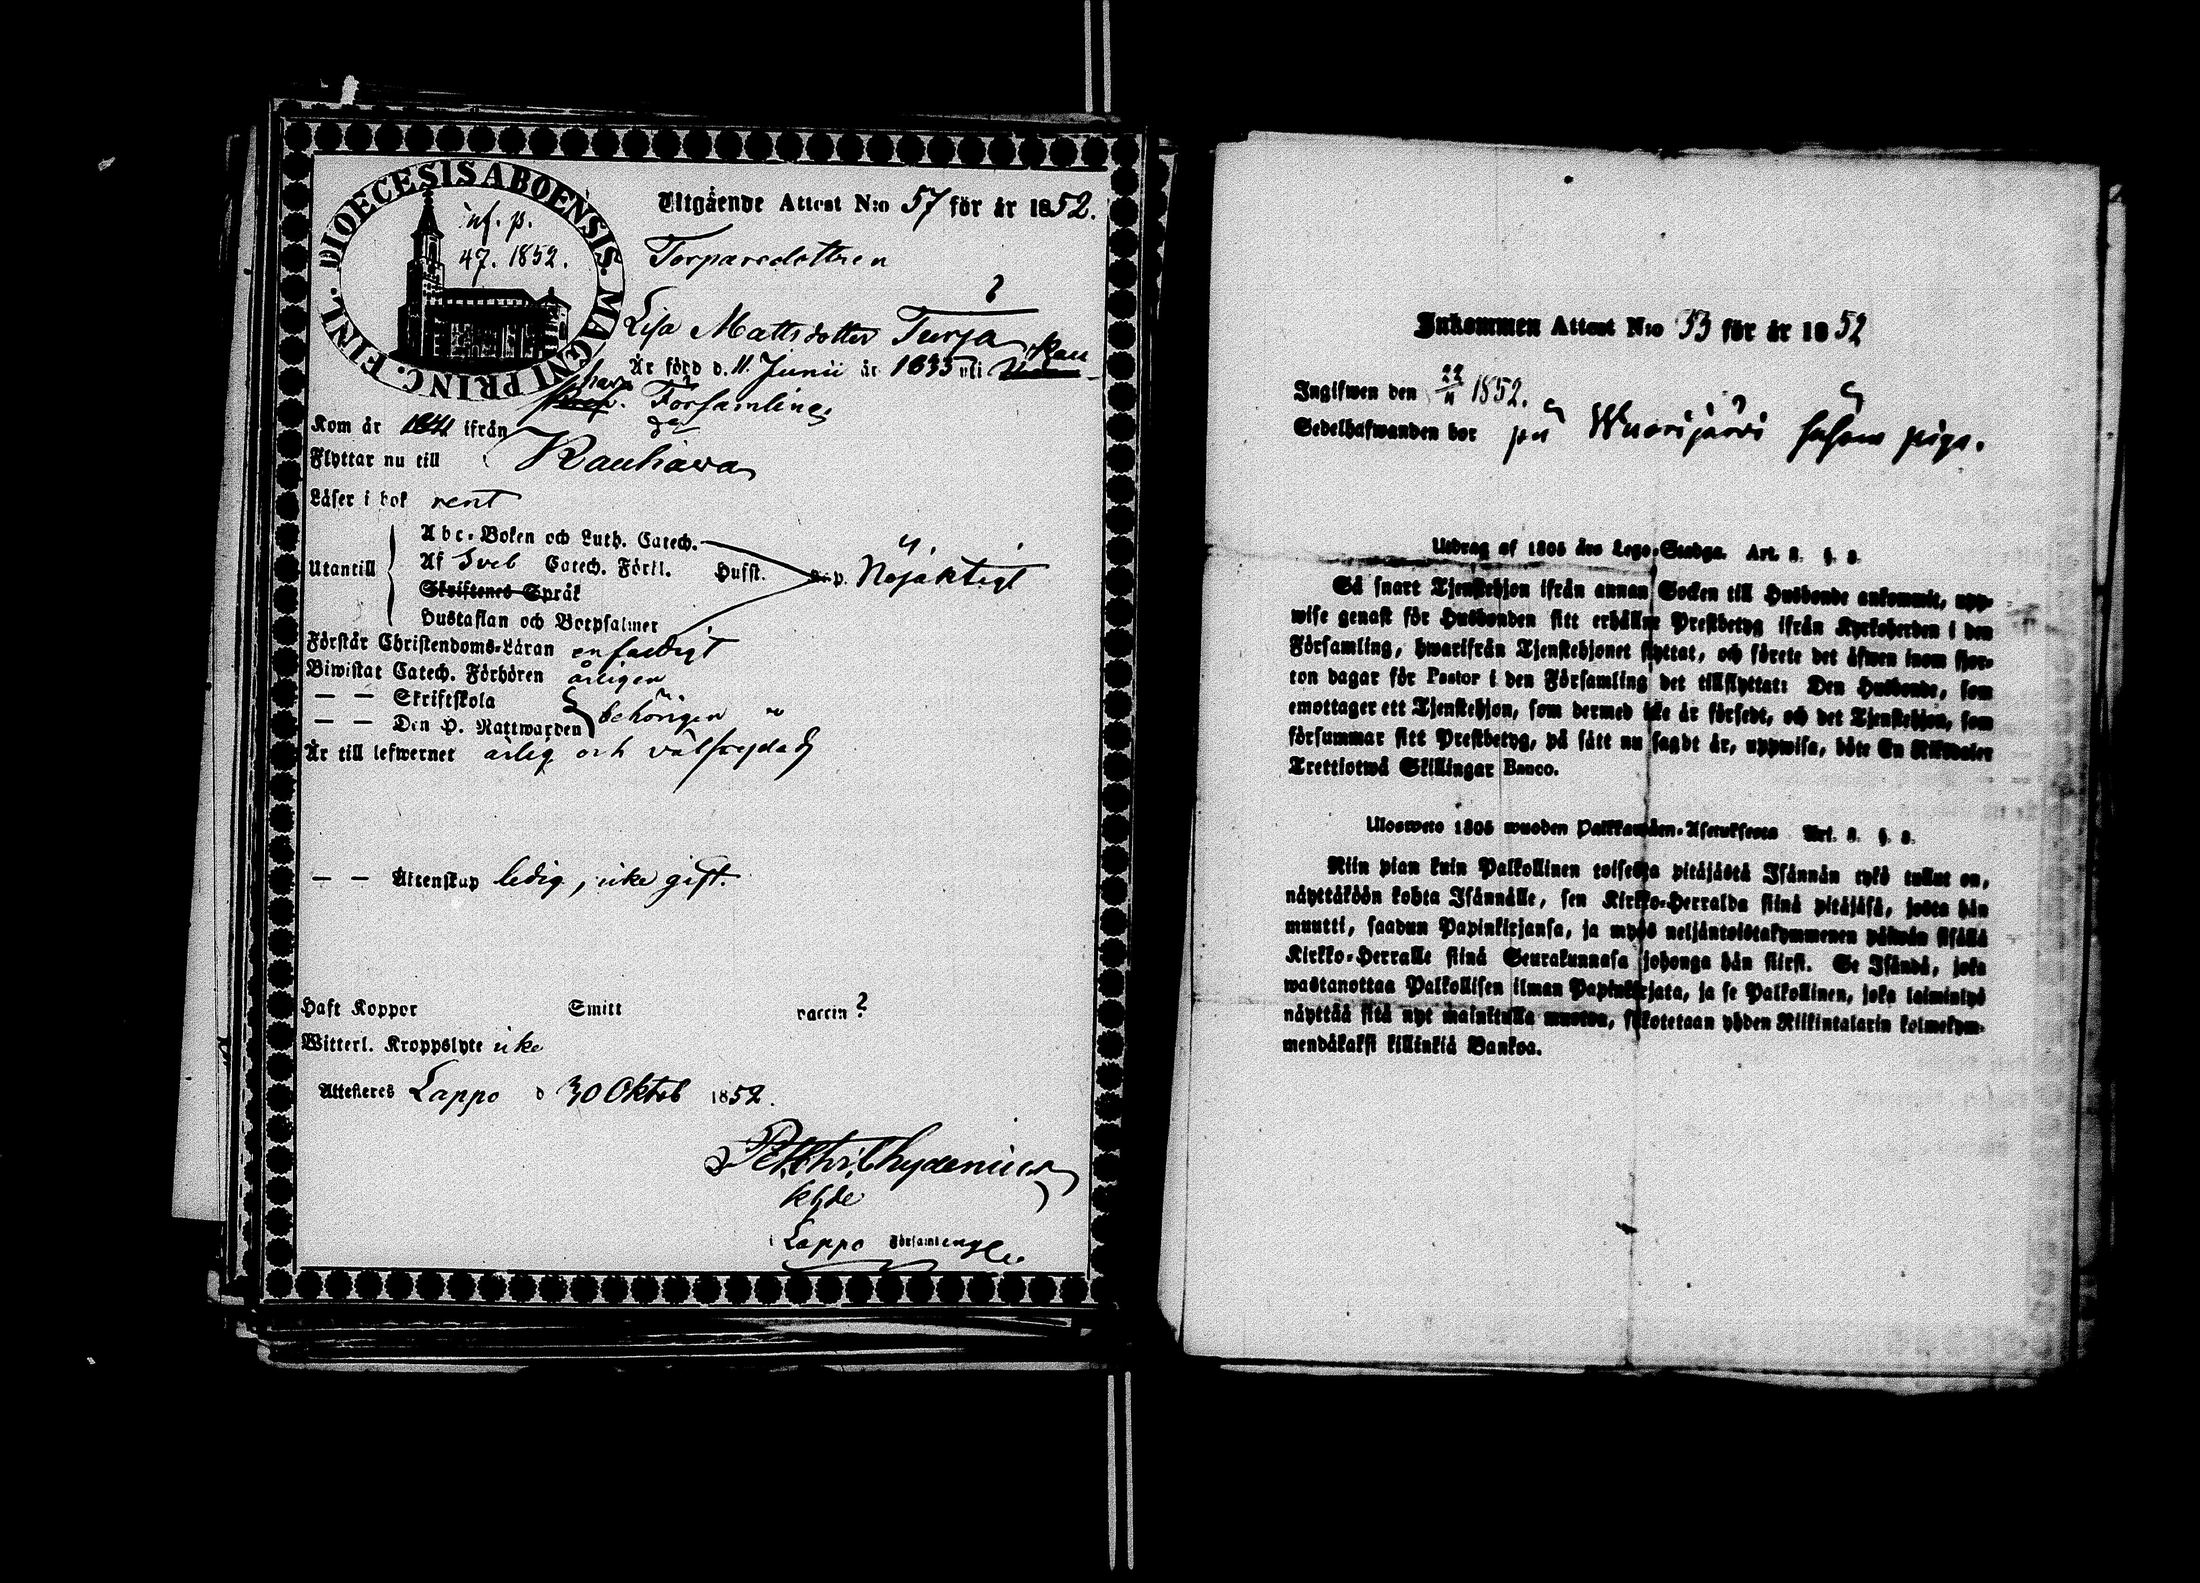 DIOECESIS ABOENSIS. MAGNI PRINC. FINL.
inf. p.
47. 1852.
Utgående Attest N:o 57 för år 1852.
Torparedottren
Lisa Mattsdotter Turja
Är född d. 11. Junii år 1835 uti Kau
hava Församling
Kom år ifrån
Flyttar nu till Kauhava
Läser i bok rent
Utantill
Abc-Boken och Luth. Catech.
Af Sveb Catech. Förkl. Husst.
Skriftenes Språk
Hustaflan och Botpsalmer
Nöjaktigt
Förstår Christendoms-Läran enfaldigt
Biwistat Catech. Förhören årligen
— — Skriftskola
— — Den H. Nattwarden
behörigen
Är till lefwernet ärlig och välfrejdad
— — Äktenskap ledig, icke gift.
Haft Koppor Smitt vaccin?
Witterl. Kroppslyte icke
Attesteres Lappo d 30 Oktob 1852.
Chydenius
i Lappo Församling
Inkommen Attest N:o 53 för år 1852
Ingifwen den 22/11 1852.
Sedelhafwanden bor på Wuorijärvi såsom piga.
Utdrag af 1805 års Lego-Stadga. Art. 8. §. 8.
Så snart Tjenstehjon ifrån annan Socken till Husbonde ankommit, upp-
wise genast för Husbonden sitt erhållne Prestbetyg ifrån Kyrkoherden i den
Församling, hwarifrån Tjenstehjonet flyttat, och förete det äfwen inom fjor-
ton dagar för Pastor i den Församling det tillflyttat: Den Husbonde, som
emottager ett Tjenstehjon, som dermed icke är försedt, och det Tjenstehjon, som
försummar sitt Prestbetyg, på sätt nu sagdt är, uppwisa, böte En Riksdaler
Trettiotwå Skillingar Banco.
Ulosweto 1805 wuoden Palkkawäen-Asetuksesta Art. 8. §. 8.
Niin pian kuin Palkollinen toisesta pitäjästä Isännän tykö tullut on,
näyttäköön kohta Isännälle, sen Kirkko-Herralda siinä pitäjäsä, josta hän
muutti, saadun Papinkirjansa, ja myös neljäntoistakymmenen päiwän sisällä
Kirkko-Herralle siinä Seurakunnasa johonga hän siirsi. Se Isändä, joka
wastanottaa Palkollisen ilman Papinkirjata, ja se Palkollinen, joka laiminlyö
näyttää sitä nyt mainitulla muotoa, sakotetaan yhden Riikintalarin kolmekym-
mendäkaksi killinkiä Bankoa.